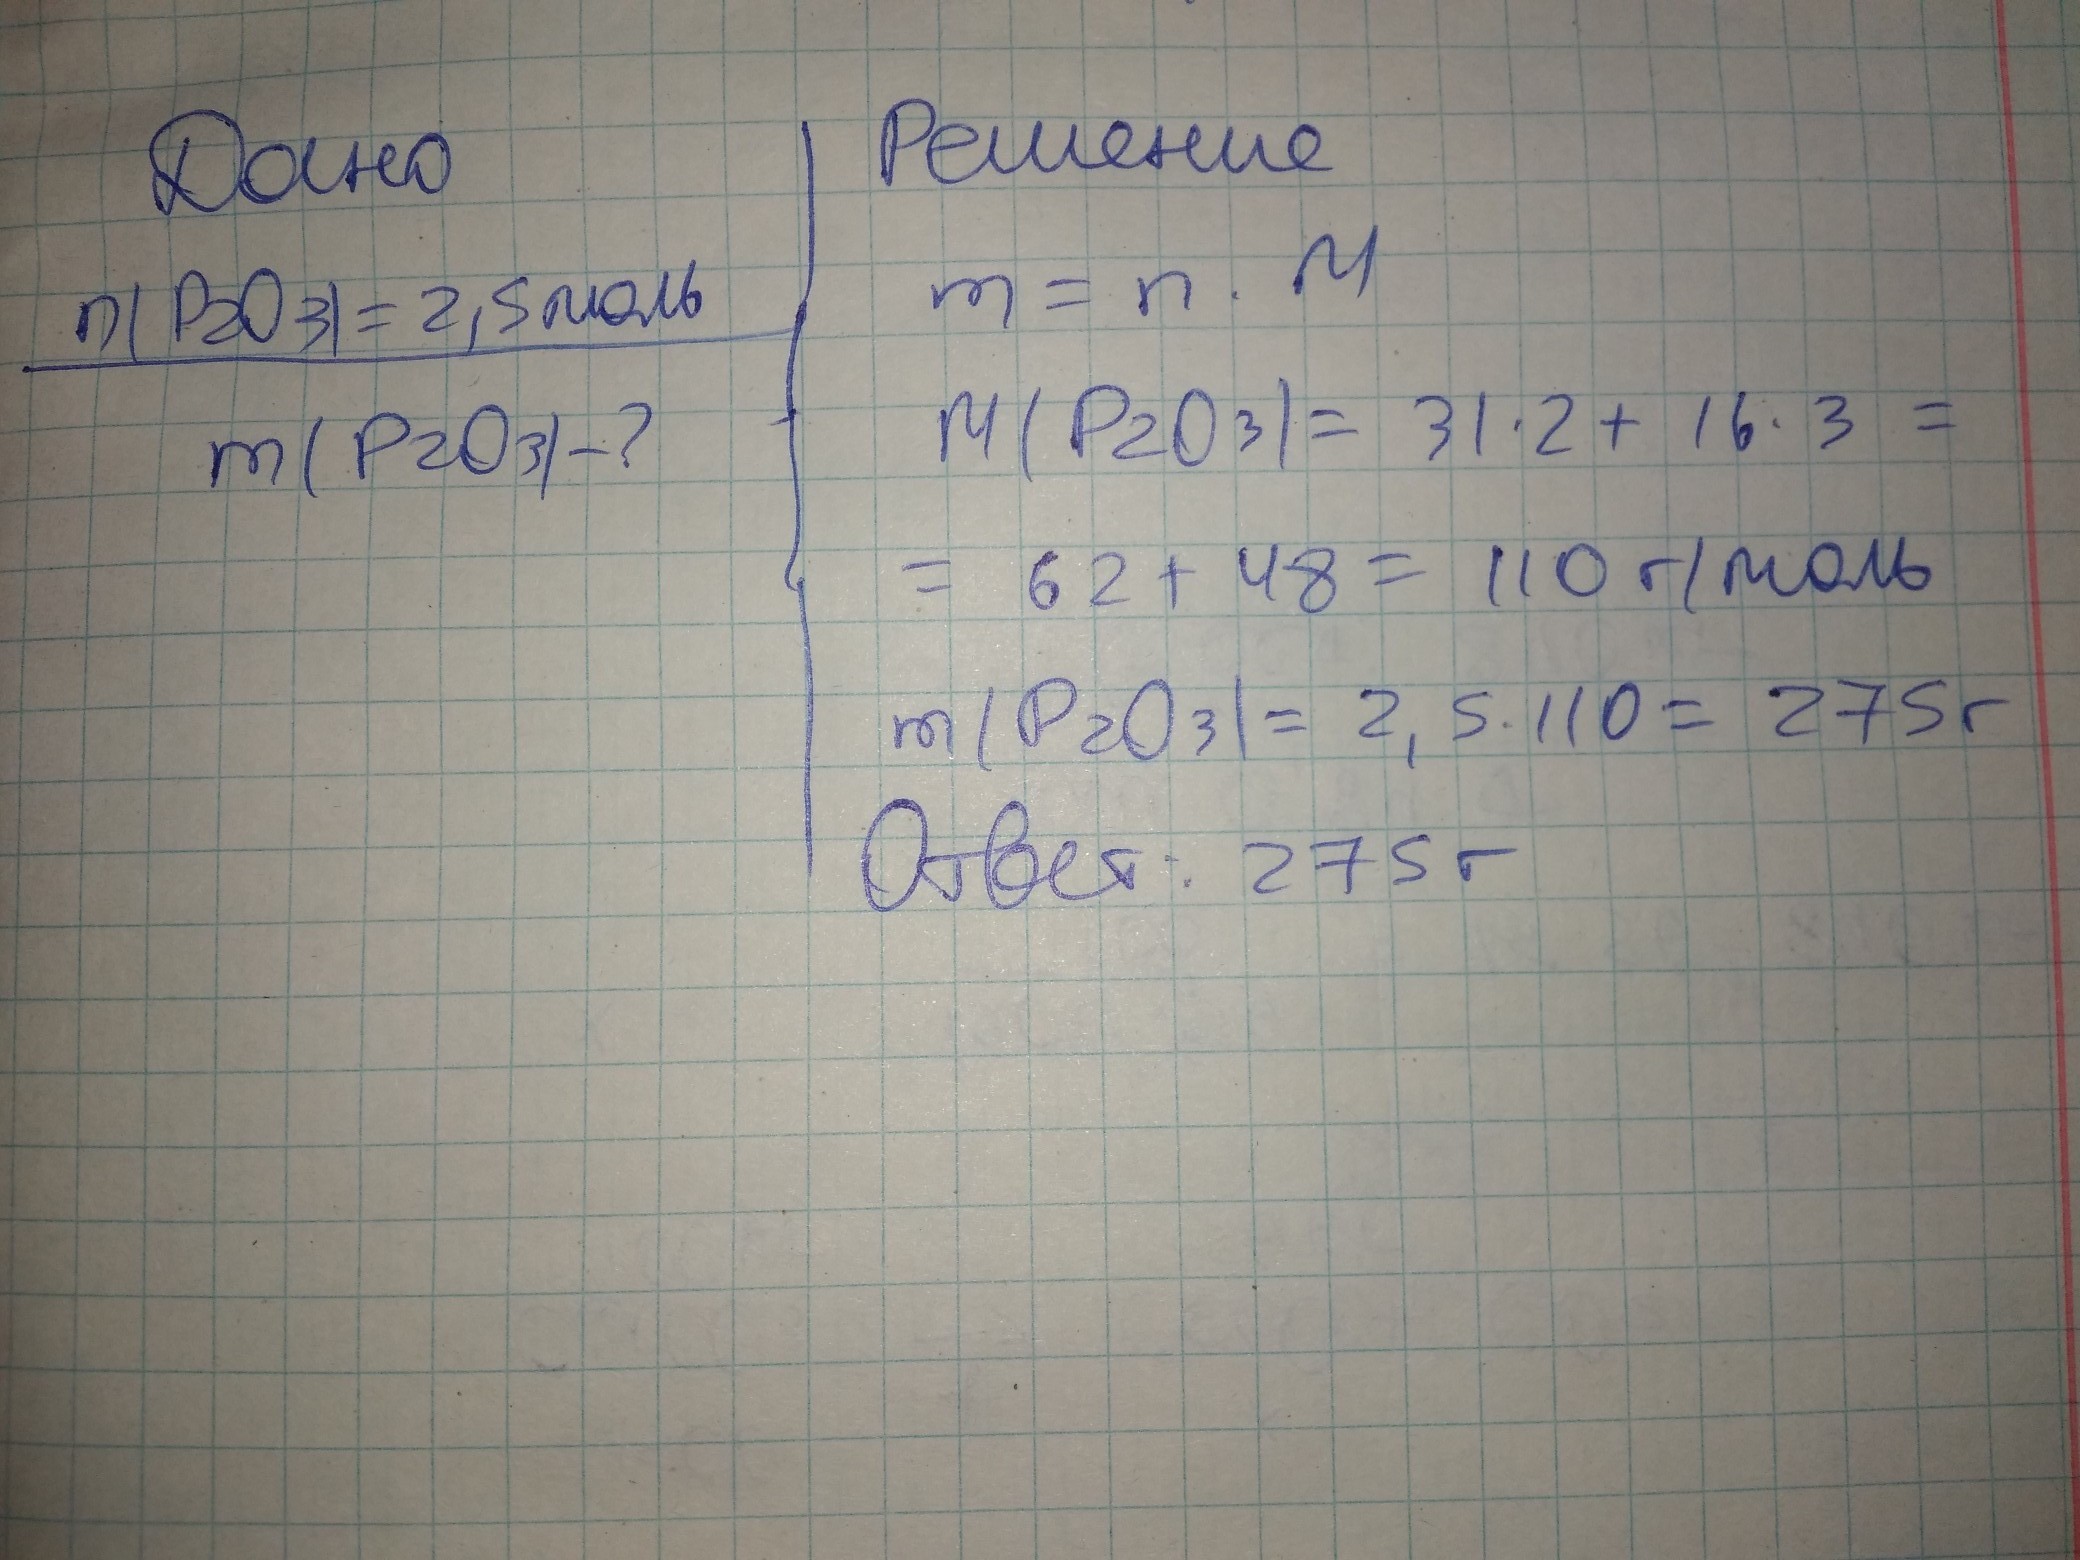 Дано
n(P2O3)=2,5моль
m(P2O3)-?
Решение
m=n·M
M(P2O3)=31·2+16·3=
=62+48=110г/моль
m(P2O3)=2,5·110=275г
Ответ: 275г